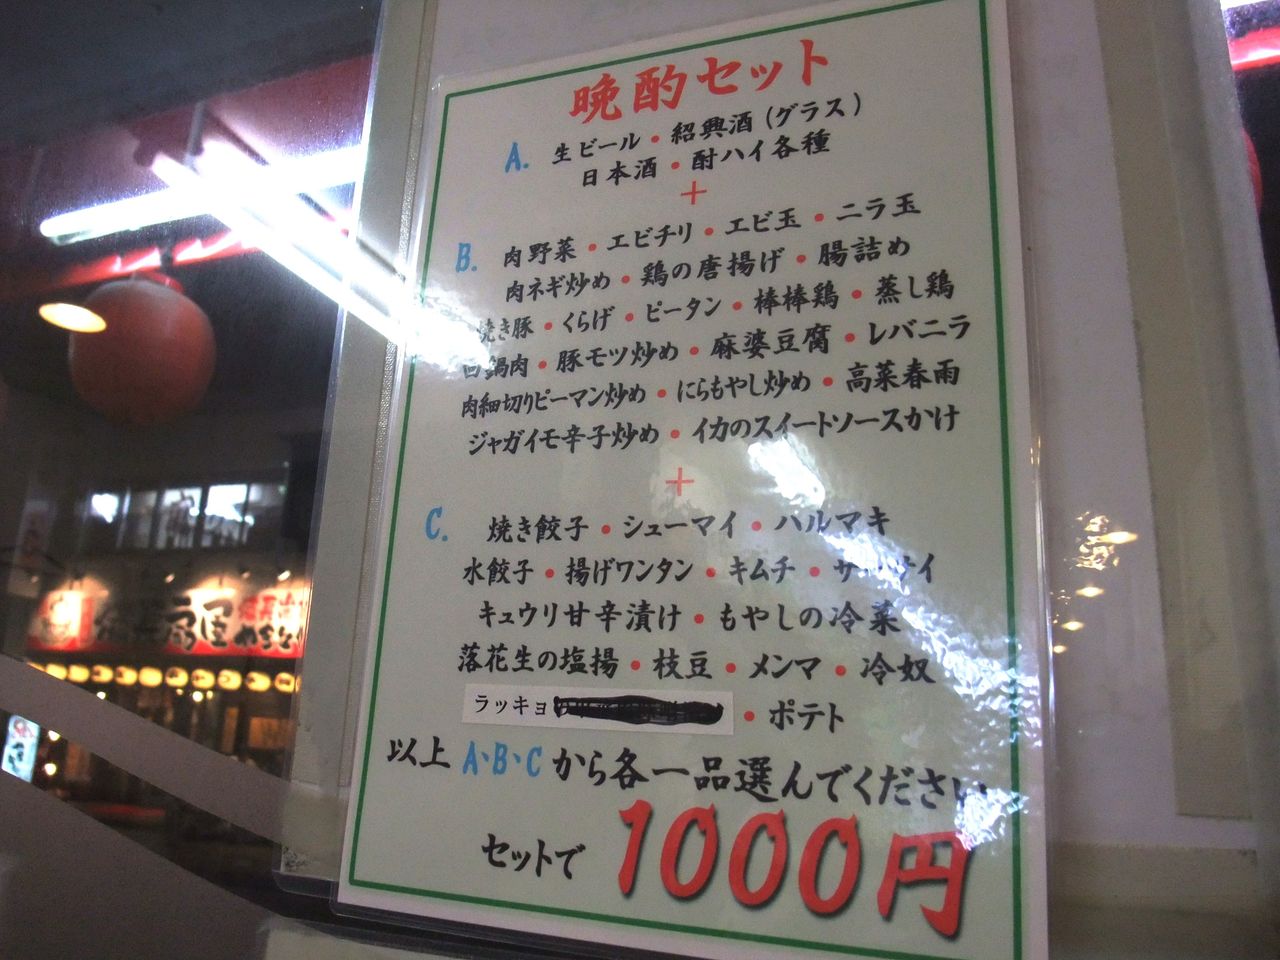 晩酌セット
A. 生ビール・紹興酒(グラス)
日本酒・酎ハイ各種
+
B. 肉野菜・エビチリ・エビ玉・ニラ玉
肉ネギ炒め・鶏の唐揚げ・腸詰め
焼き豚・くらげ・ピータン・棒棒鶏・蒸し鶏
回鍋肉・豚モツ炒め・麻婆豆腐・レバニラ
肉細切りピーマン炒め・にらもやし炒め・高菜春雨
ジャガイモ辛子炒め・イカのスイートソースかけ
+
C. 焼き餃子・シューマイ・ハルマキ
水餃子・揚げワンタン・キムチ・ザーサイ
キュウリ甘辛漬け・もやしの冷菜
落花生の塩揚・枝豆・メンマ・冷奴
ラッキョ・ポテト
以上 A、B、C から各一品選んでください
セットで 1000円